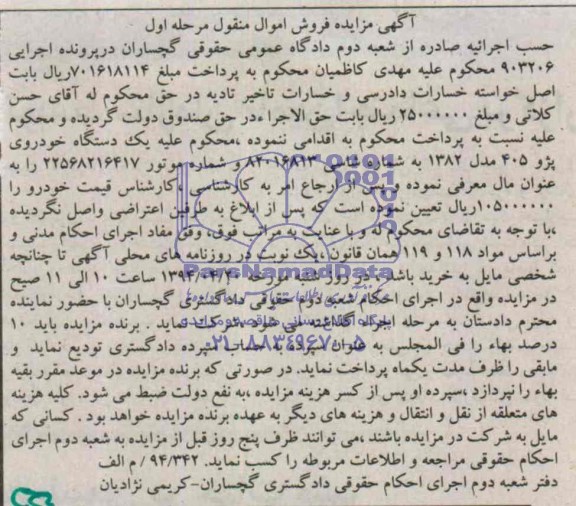 آگهی مزایده فروش اموال منقول مرحله اول
حسب اجرائیه صادره از شعبه دوم دادگاه عمومی حقوقی گچساران درپرونده اجرایی
۹۰۳۲۰۶ محکوم علیه مهدی کاظمیان محکوم به پرداخت مبلغ ۷۰۱۶۱۸۱۱۴ریال بابت
اصل خواسته خسارات دادرسی و خسارات تاخیر تادیه در حق محکوم له آقای حسن
کلاتی و مبلغ ۲۵۰۰۰۰۰۰ ریال بابت حق الاجراءدر حق صندوق دولت گردیده و محکوم
علیه نسبت به پرداخت محکوم به اقدامی ننموده ،محکوم علیه یک دستگاه خودروی
پژو ۴۰۵ مدل ۱۳۸۲ به شماره شاسی ۸۲۰۱۶۸۱۳ و شماره موتور ۲۲۵۶۸۲۱۶۴۱۷ را به
عنوان مال معرفی نموده و پس از ارجاع امر به کارشناسی ،کارشناس قیمت خودرو را
۱۰۵۰۰۰۰۰۰ریال تعیین نموده است که پس از ابلاغ به طرفین اعتراضی واصل نگردیده
،با توجه به تقاضای محکوم له و با عنایت به مراتب فوق، وفق مفاد اجرای احکام مدنی و
براساس مواد ۱۱۸ و ۱۱۹ همان قانون ،یک نوبت در روزنامه های محلی آگهی تا چنانچه
شخصی مایل به خرید باشد در روز شنبه مورخه ساعت ۱۰ الی ۱۱ صبح
در مزایده واقع در اجرای احکام شعبه دوم حقوقی دادگستری گچساران با حضور نماینده
محترم دادستان به مرحله اجرا گذاشته می شود شرکت نماید . برنده مزایده باید ۱۰
درصد بهاء را فی المجلس به عنوان سپرده به حساب سپرده دادگستری تودیع نماید و
مابقی را ظرف مدت یکماه پرداخت نماید. در صورتی که برنده مزایده در موعد مقرر بقیه
بهاء را نپردازد ،سپرده او پس از کسر هزینه مزایده ،به نفع دولت ضبط می شود. کلیه هزینه
های متعلقه از نقل و انتقال و هزینه های دیگر به عهده برنده مزایده خواهد بود . کسانی که
مایل به شرکت در مزایده باشند ،می توانند ظرف پنج روز قبل از مزایده به شعبه دوم اجرای
احکام حقوقی مراجعه و اطلاعات مربوطه را کسب نماید. ۹۴/۳۴۲ / م الف
دفتر شعبه دوم اجرای احکام حقوقی دادگستری گچساران-کریمی نژادیان
ParsNamadData
۰۲۱-۸۸۳۴۹۶۷۰-۵